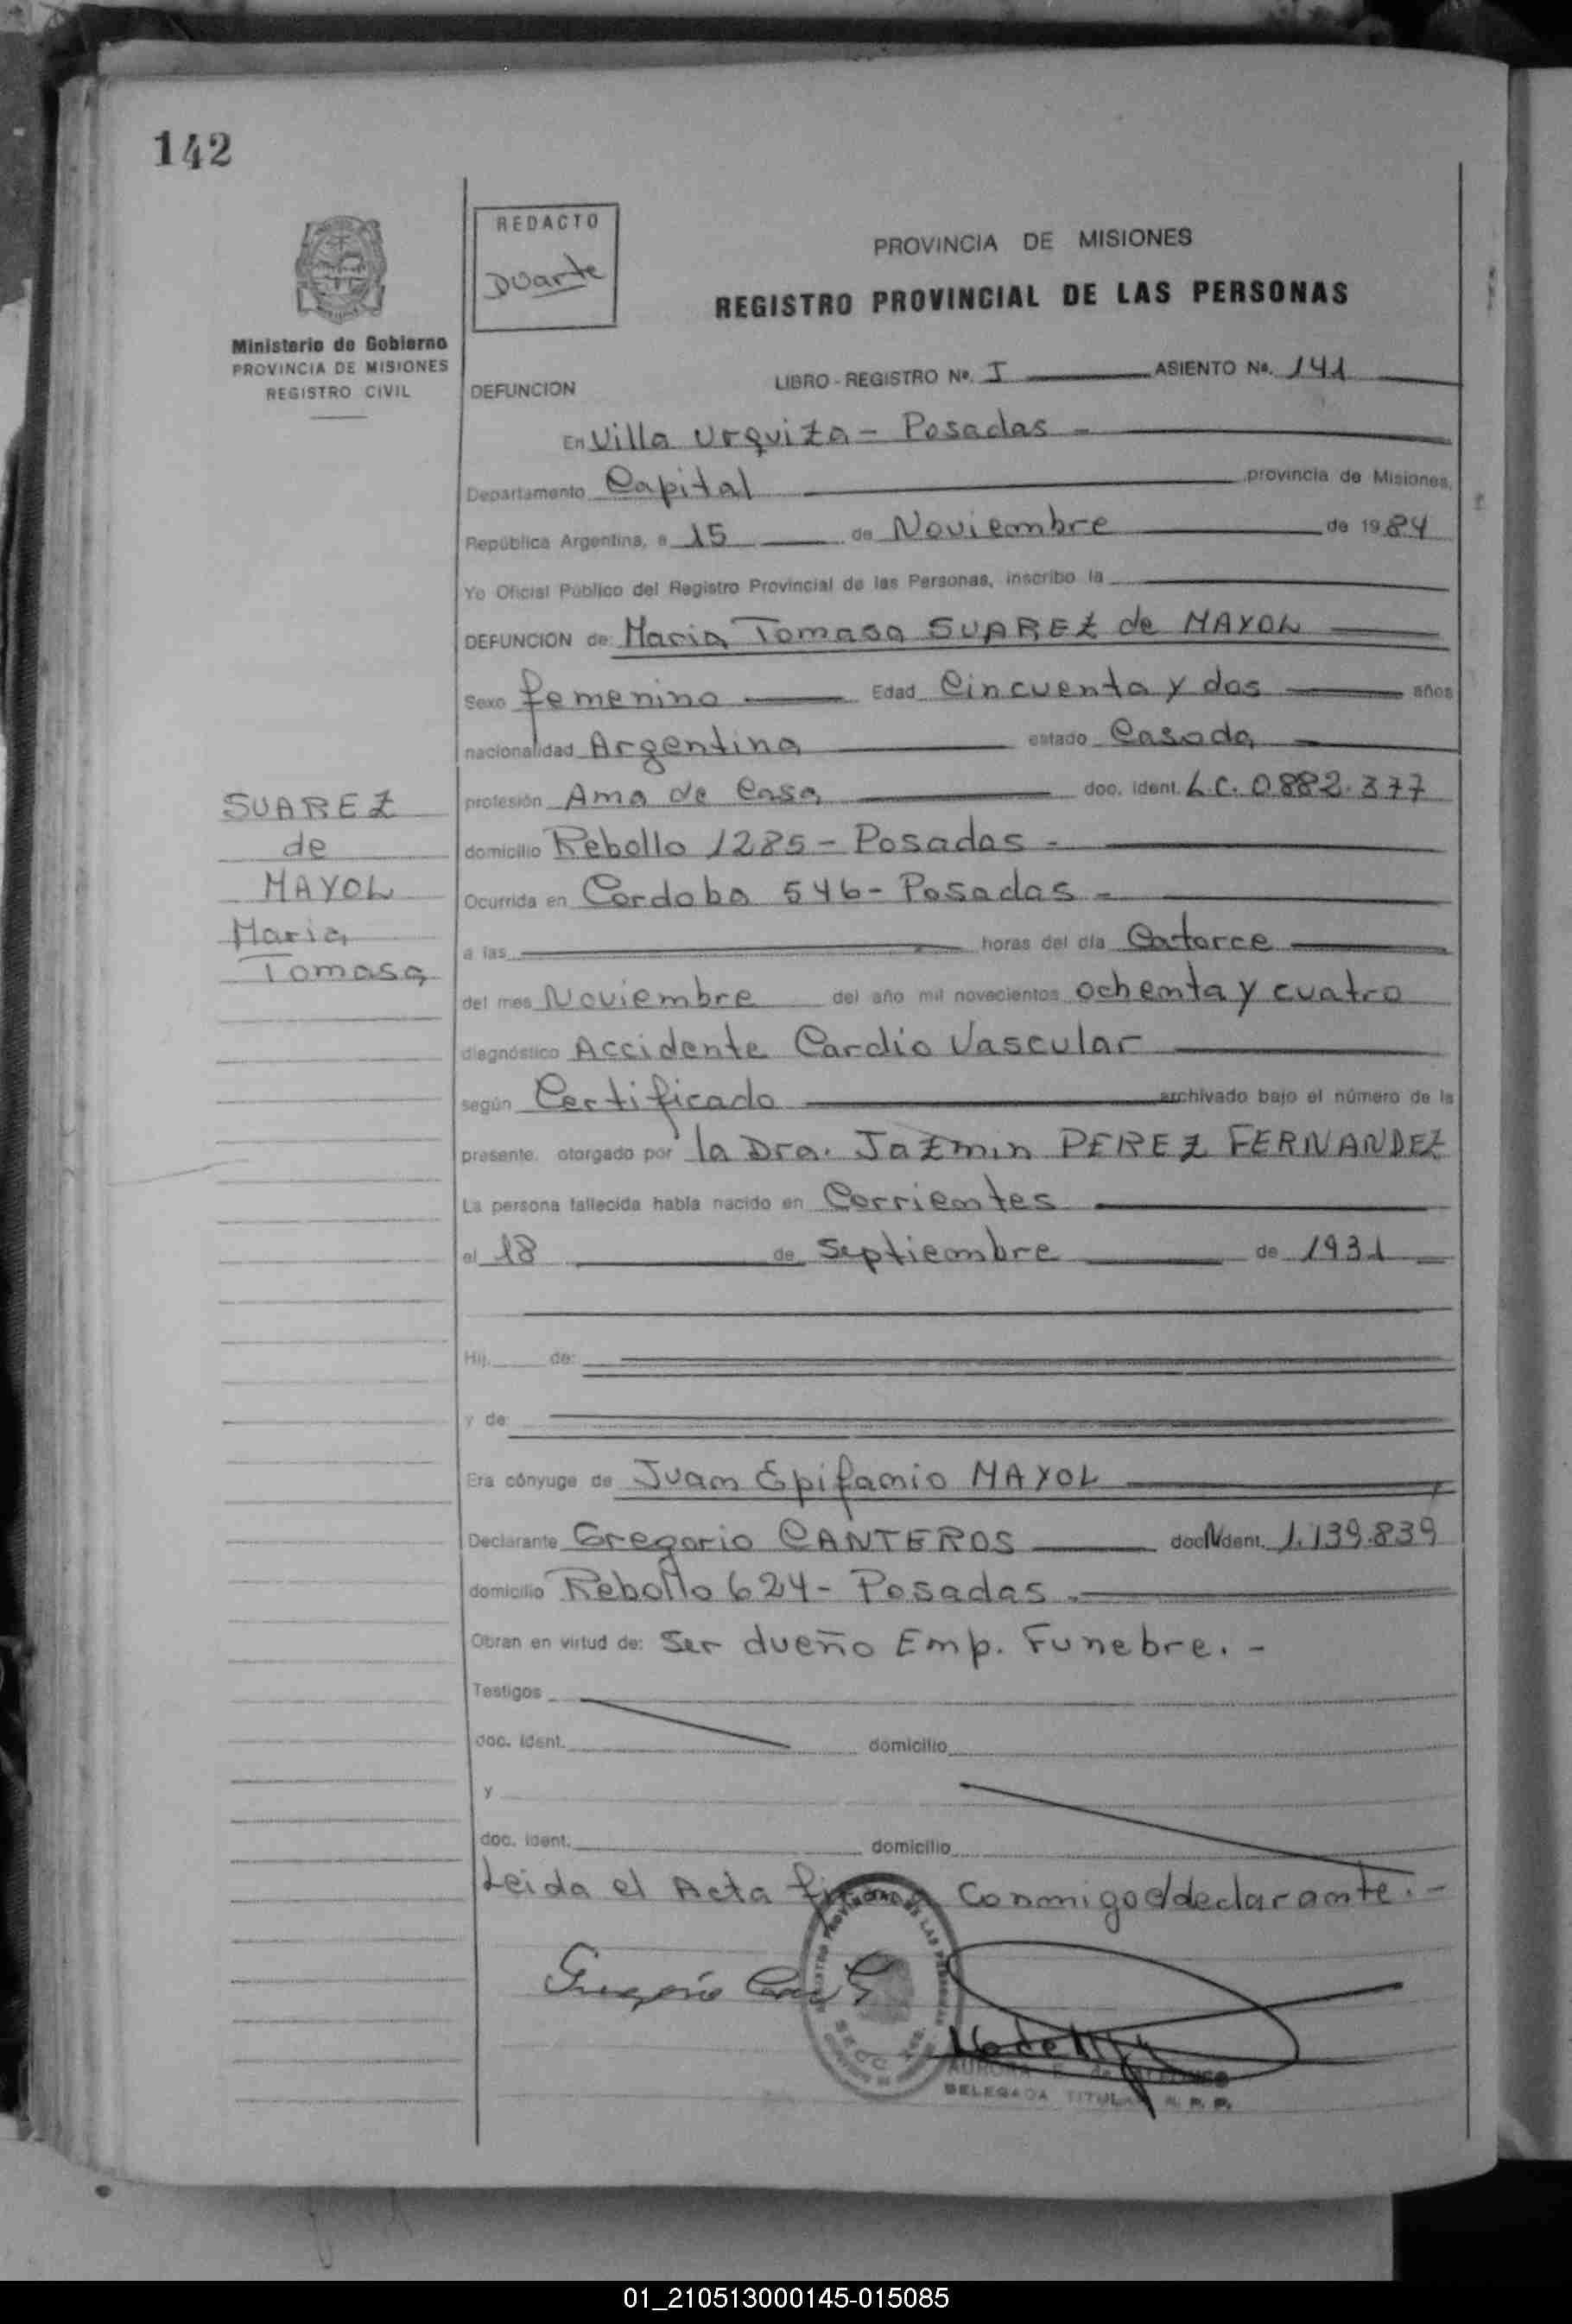 142
REDACTO
Duarte
Ministerio de Gobierno
PROVINCIA DE MISIONES
REGISTRO CIVIL
PROVINCIA DE MISIONES
REGISTRO PROVINCIAL DE LAS PERSONAS
DEFUNCION LIBRO - REGISTRO Nº. I ASIENTO Nº. 141
En Villa Urquiza - Posadas -
Departamento Capital provincia de Misiones,
República Argentina, a 15 de Noviembre de 1984
Yo Oficial Público del Registro Provincial de las Personas, inscribo la
DEFUNCION de: Maria Tomasa SUAREZ de MAYOL
Sexo femenino Edad Cincuenta y dos años
nacionalidad Argentina estado Casada
SUAREZ
de
MAYOL
Maria
Tomasa
profesión Ama de Casa doc. ident. L.C. 0882.377
domicilio Rebollo 1285 - Posadas -
Ocurrida en Cordoba 546 - Posadas -
a las horas del día Catorce
del mes Noviembre del año mil novecientos ochenta y cuatro
diagnóstico Accidente Cardio Vascular
según Certificado archivado bajo el número de la
presente, otorgado por la Dra. Jazmin PEREZ FERNANDEZ
La persona fallecida había nacido en Corrientes
el 18 de Septiembre de 1931
Hij de:
y de:
Era cónyuge de Juan Epifanio MAYOL
Declarante Gregorio CANTEROS doc. ident. 1.139.839
domicilio Rebollo 624 - Posadas -
Obran en virtud de: Ser dueño Emp. Funebre. -
Testigos
doc. ident. domicilio
y
doc. ident. domicilio
Leida el Acta firma conmigo el declarante. -
Gregorio
DELEGADA TITULAR R. P. P.
01_210513000145-015085